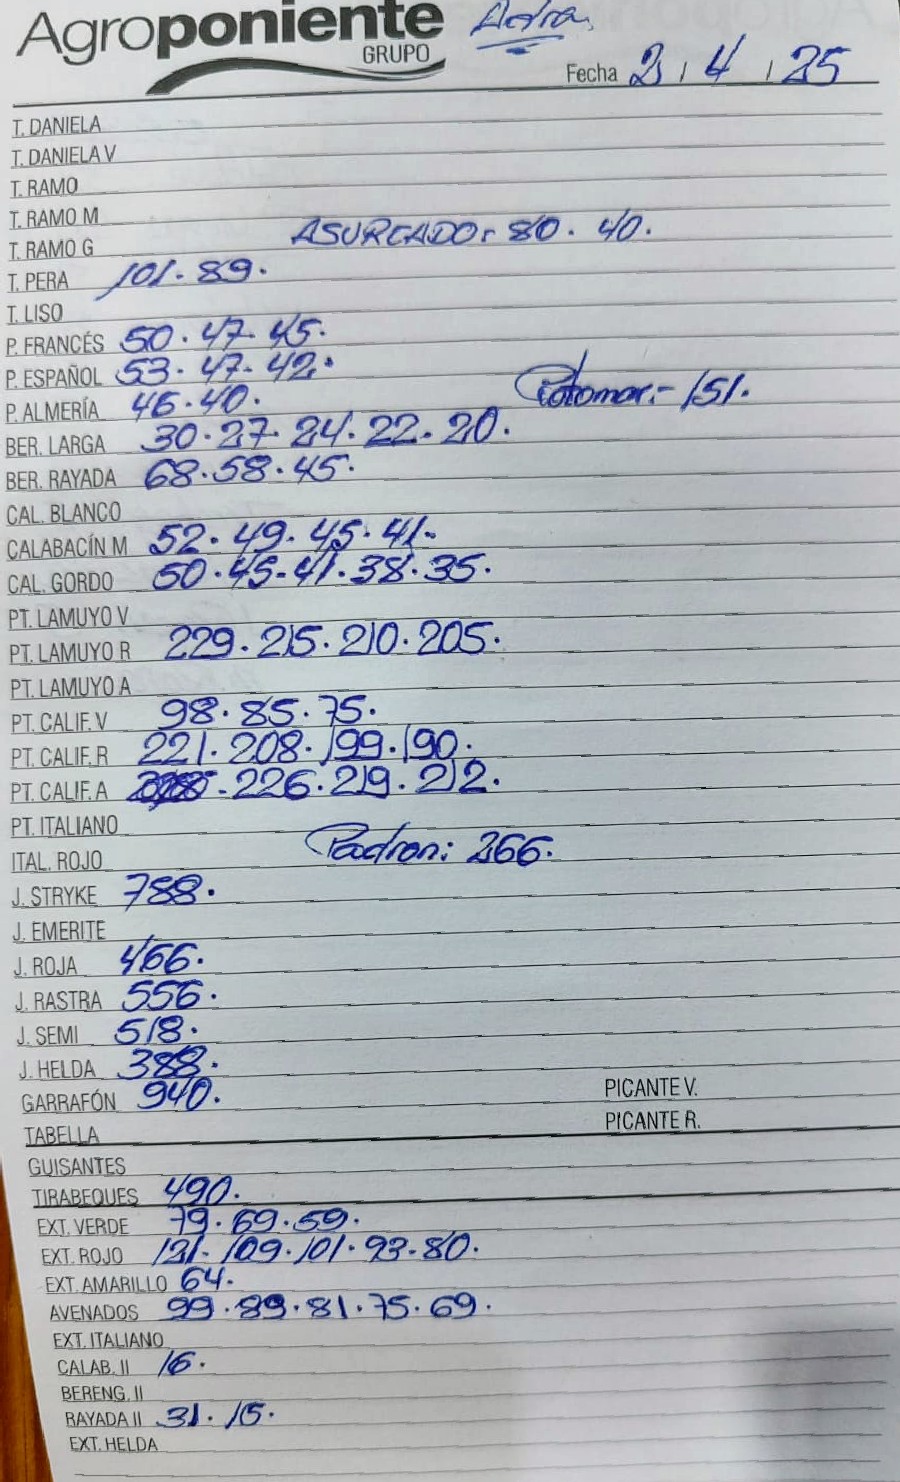 Agroponiente Adra.
GRUPO
Fecha 2 / 4 / 25
T. DANIELA
T. DANIELA V
T. RAMO
T. RAMO M
T. RAMO G ASURCADO: 80. 40.
T. PERA 101. 89.
T. LISO
P. FRANCÉS 50. 47. 45.
P. ESPAÑOL 53. 47. 42.
P. ALMERÍA 46. 40. 151.
BER. LARGA 30. 27. 24. 22. 20.
BER. RAYADA 68. 58. 45.
CAL. BLANCO
CALABACÍN M 52. 49. 45. 41.
CAL. GORDO 50. 45. 41. 38. 35.
PT. LAMUYO V
PT. LAMUYO R 229. 215. 210. 205.
PT. LAMUYO A
PT. CALIF. V 98. 85. 75.
PT. CALIF. R 221. 208. 199. 190.
PT. CALIF. A 226. 219. 212.
PT. ITALIANO
ITAL. ROJO Padron: 266.
J. STRYKE 788.
J. EMERITE
J. ROJA 466.
J. RASTRA 556.
J. SEMI 518.
J. HELDA 388.
GARRAFÓN 940. PICANTE V.
TABELLA PICANTE R.
GUISANTES
TIRABEQUES 490.
EXT. VERDE 79. 69. 59.
EXT. ROJO 121. 109. 101. 93. 80.
EXT. AMARILLO 64.
AVENADOS 99. 89. 81. 75. 69.
EXT. ITALIANO
CALAB. II 16.
BERENG. II
RAYADA II 31. 15.
EXT. HELDA